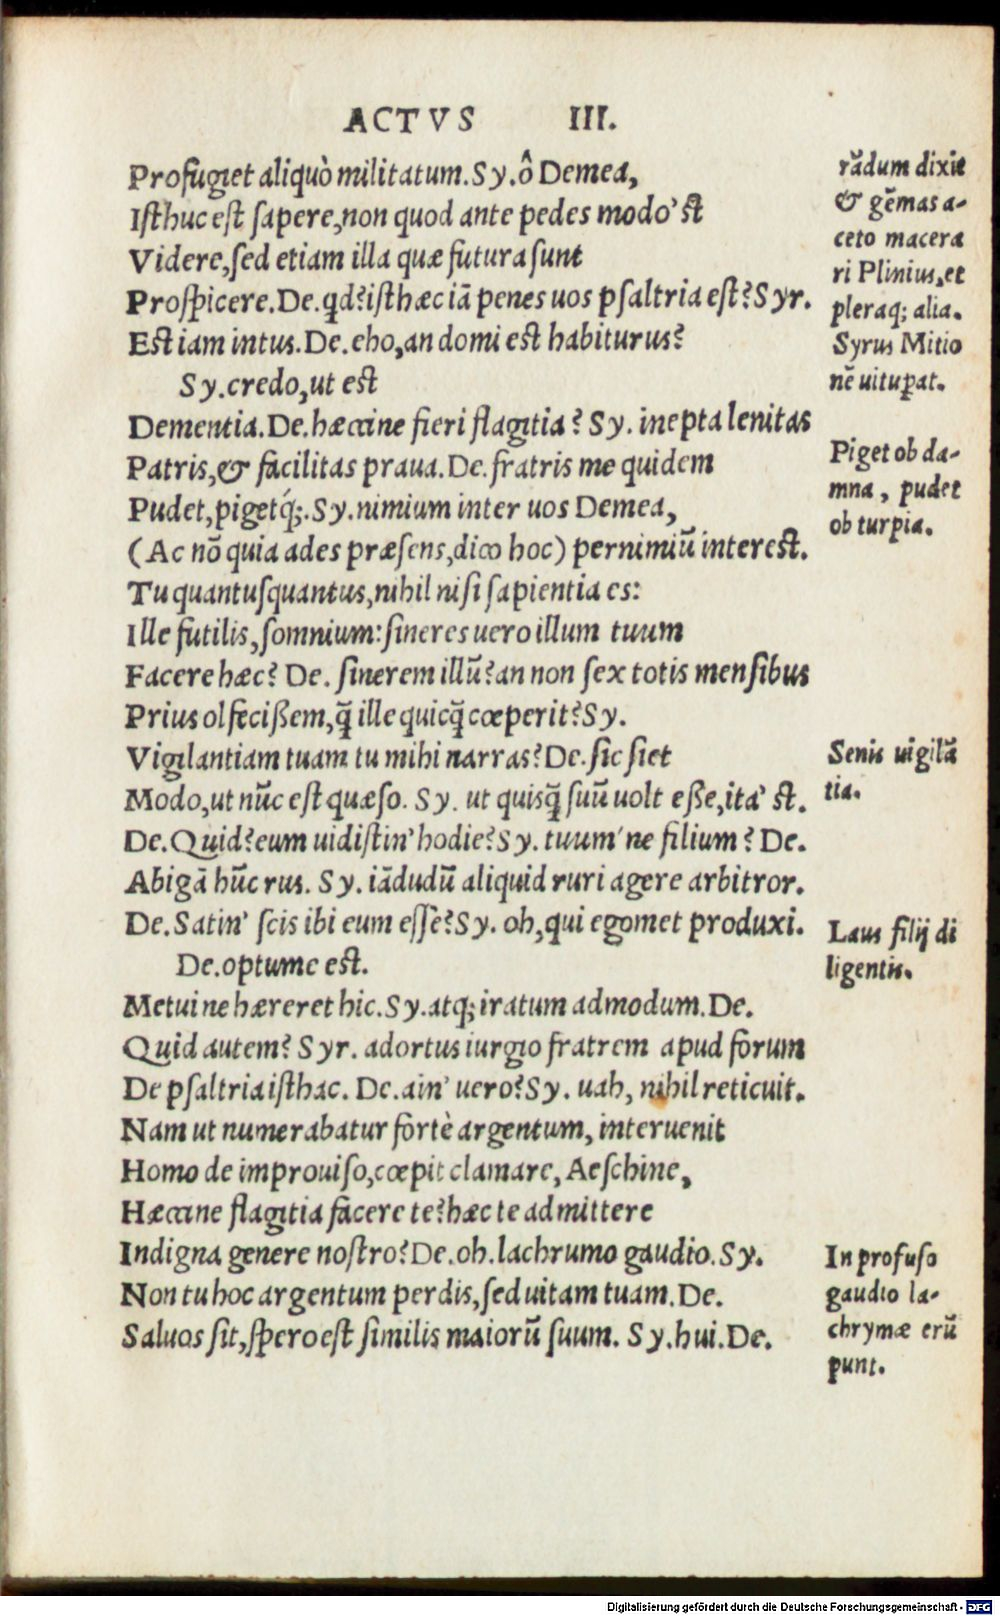 ACTVS III.
Profugiet aliquò militatum. Sy. ô Demea,
Isthuc est sapere, non quod ante pedes modo' st
Videre, sed etiam illa quæ futura sunt
Prospicere. De. qd? isthæc iā penes uos psaltria est? Syr.
Est iam intus. De. eho, an domi est habiturus?
Sy. credo, ut est
Dementia. De. hæccine fieri flagitia? Sy. inepta lenitas
Patris, & facilitas praua. De. fratris me quidem
Pudet, pigetq́;. Sy. nimium inter uos Demea,
(Ac nō quia ades præsens, dico hoc) pernimiū interest.
Tu quantusquantus, nihil nisi sapientia es:
Ille futilis, somnium: sineres uero illum tuum
Facere hæc? De. sinerem illū? an non sex totis mensibus
Prius olfecißem, q̄ ille quicq̄ cœperit? Sy.
Vigilantiam tuam tu mihi narras? De. sic siet
Modo, ut nūc est quæso. Sy. ut quisq̄ suū uolt eße, ita' st.
De. Quid? eum uidistin' hodie? Sy. tuum' ne filium? De.
Abigā hūc rus. Sy. iādudū aliquid ruri agere arbitror.
De. Satin' scis ibi eum esse? Sy. oh, qui egomet produxi.
De. optume est.
Metui ne hæreret hic. Sy. atq; iratum admodum. De.
Quid autem? Syr. adortus iurgio fratrem apud forum
De psaltria isthac. De. ain' uero? Sy. uah, nihil reticuit.
Nam ut numerabatur fortè argentum, interuenit
Homo de improuiso, cœpit clamare, Aeschine,
Hæccine flagitia facere te? hæc te admittere
Indigna genere nostro? De. oh. lachrumo gaudio. Sy.
Non tu hoc argentum perdis, sed uitam tuam. De.
Saluos sit, spero est similis maiorū suum. Sy. hui. De.
rādum dixit
& gēmas a-
ceto macera
ri Plinius, et
pleraq; alia.
Syrus Mitio
nē uitupat.
Piget ob da-
mna, pudet
ob turpia.
Senis uigilā
tia.
Laus filij di
ligentis.
In profuso
gaudio la-
chrymæ erū
punt.
Digitalisierung gefördert durch die Deutsche Forschungsgemeinschaft - DFG